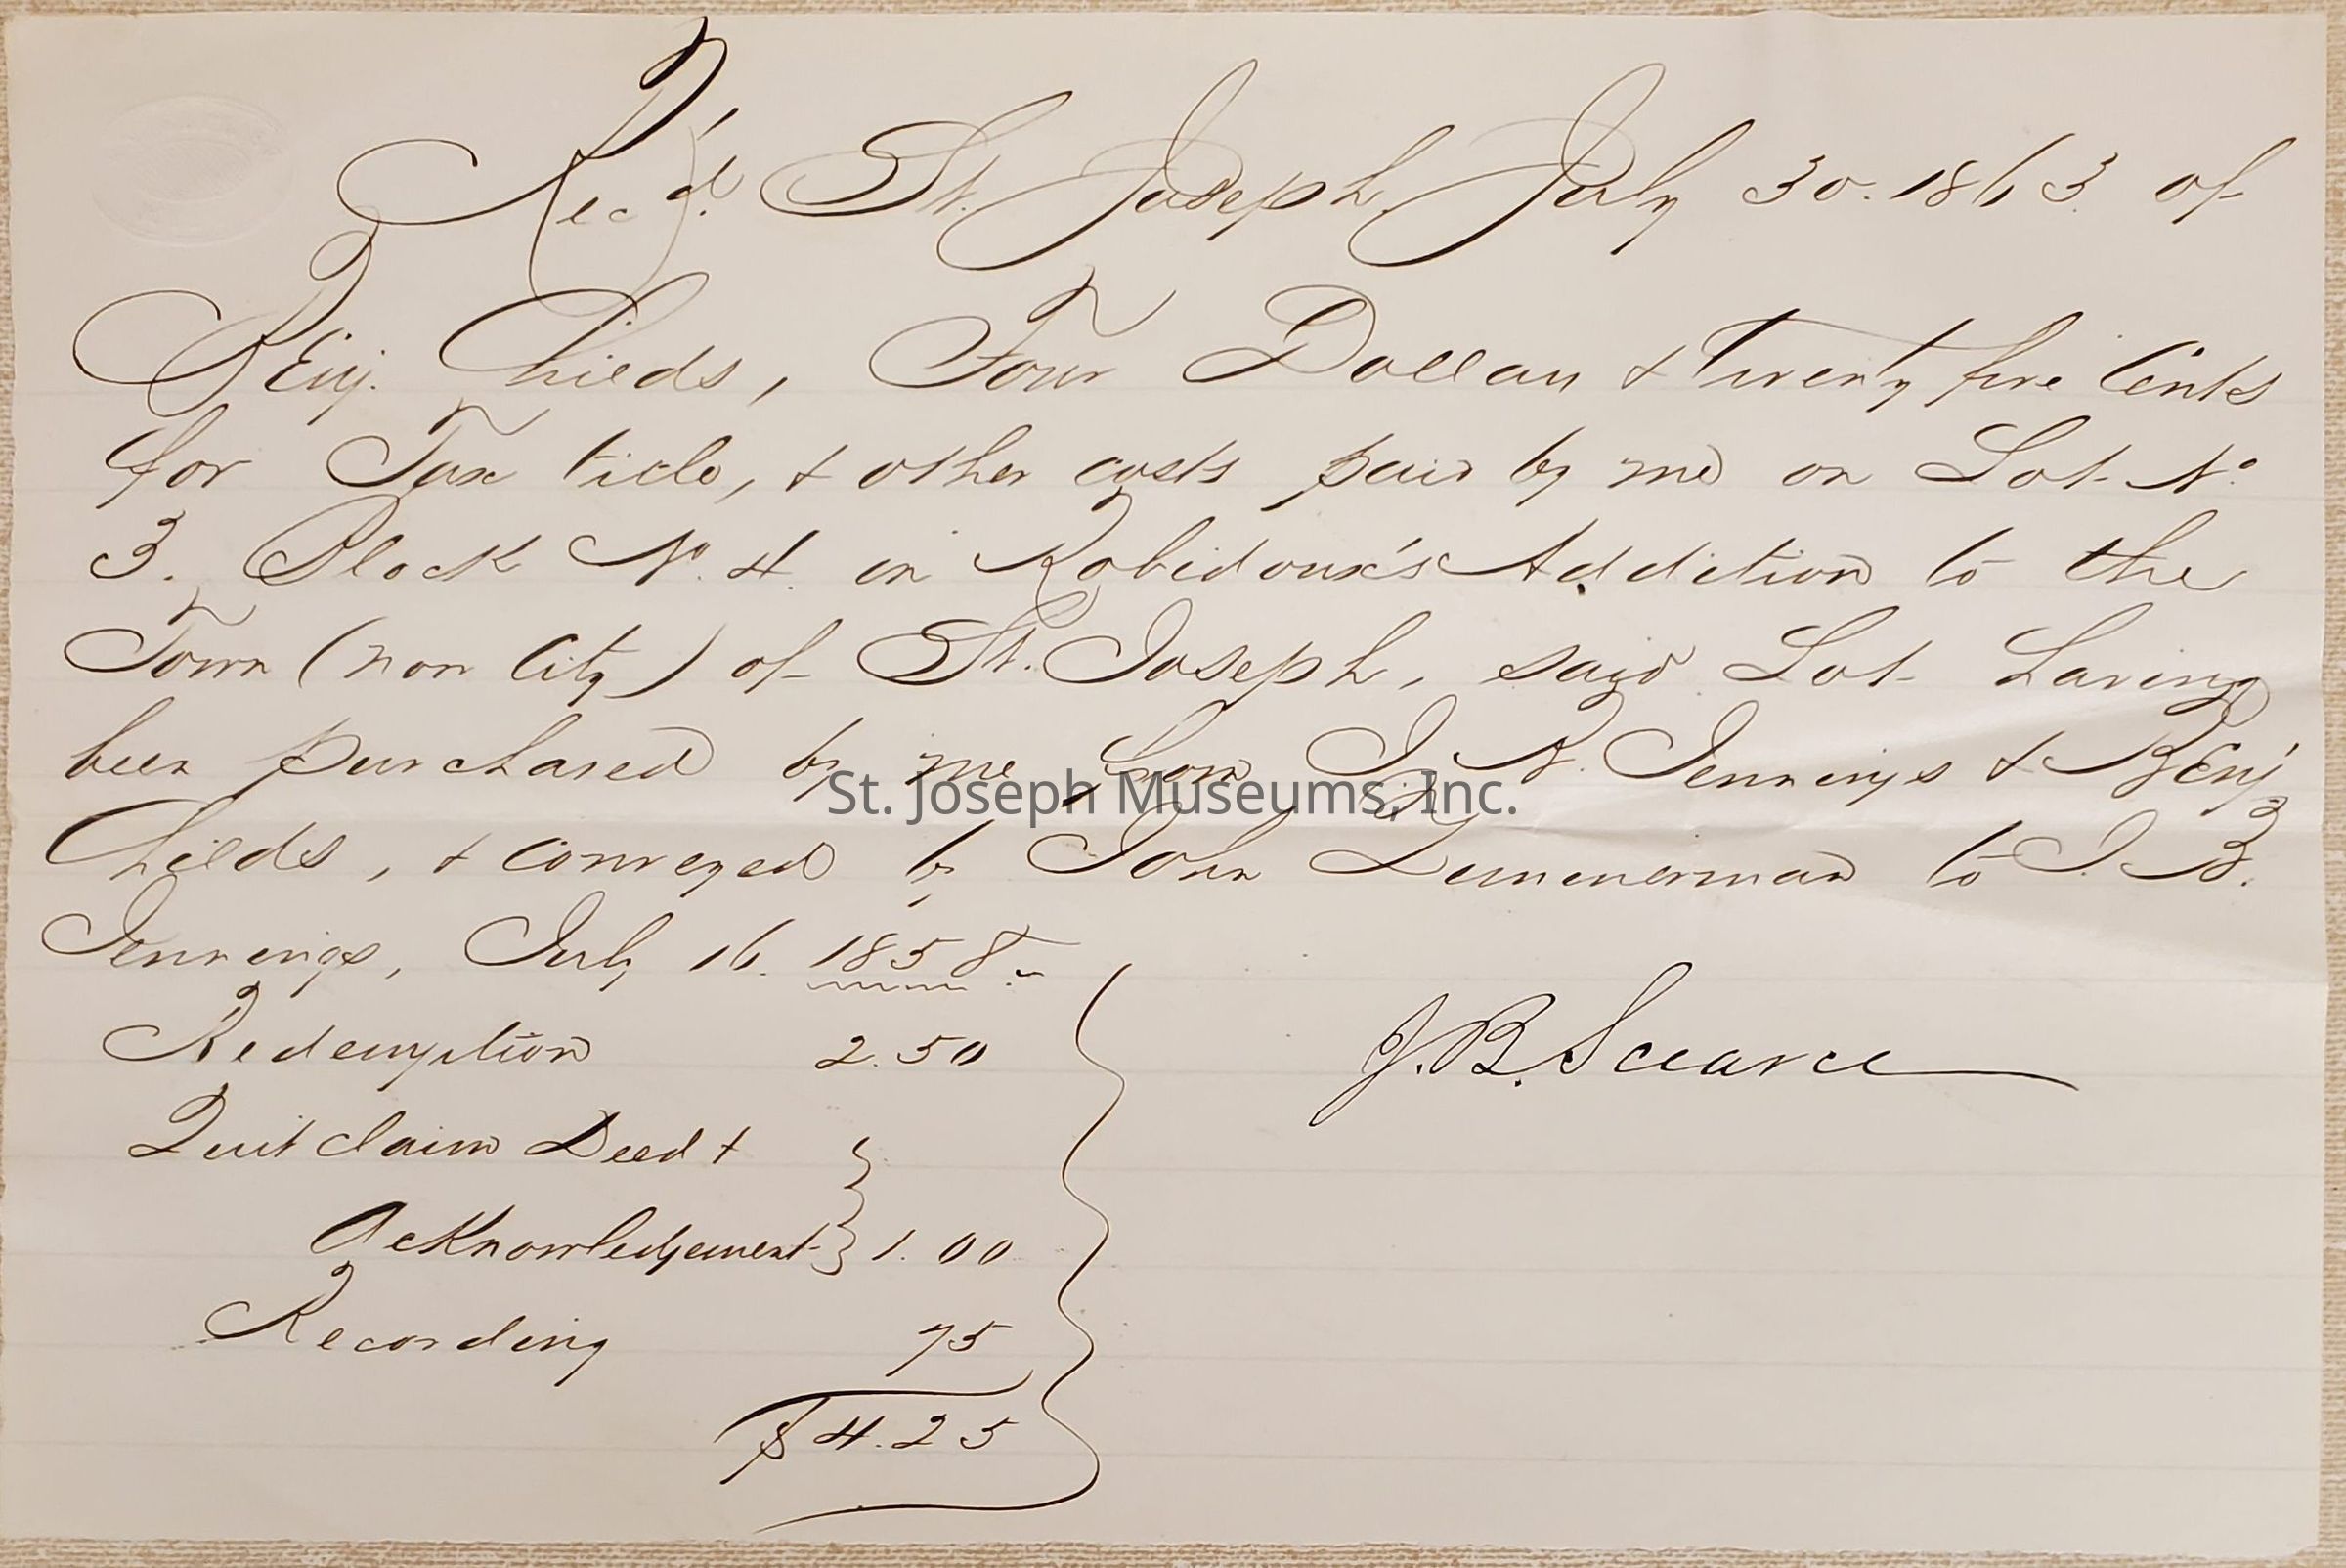 Rec'd. St. Joseph, July 30. 1863. of
Benj. Childs, Four Dollars & Twenty five Cents
for Tax title, & other costs paid by me on Lot No
3. Block No. 4. in Robidoux's Addition to the
Town (now City) of St. Joseph, said Lot having
been purchased by me from J. B. Jennings & Benj.
Childs, & conveyed by John Zimmerman to J. B.
Jennings, July 16. 1858.
Redemption 2.50
Quit claim Deed &
Acknowledgement 1.00
Recording 75
$4.25
J. B. Scearce
St. Joseph Museums, Inc.